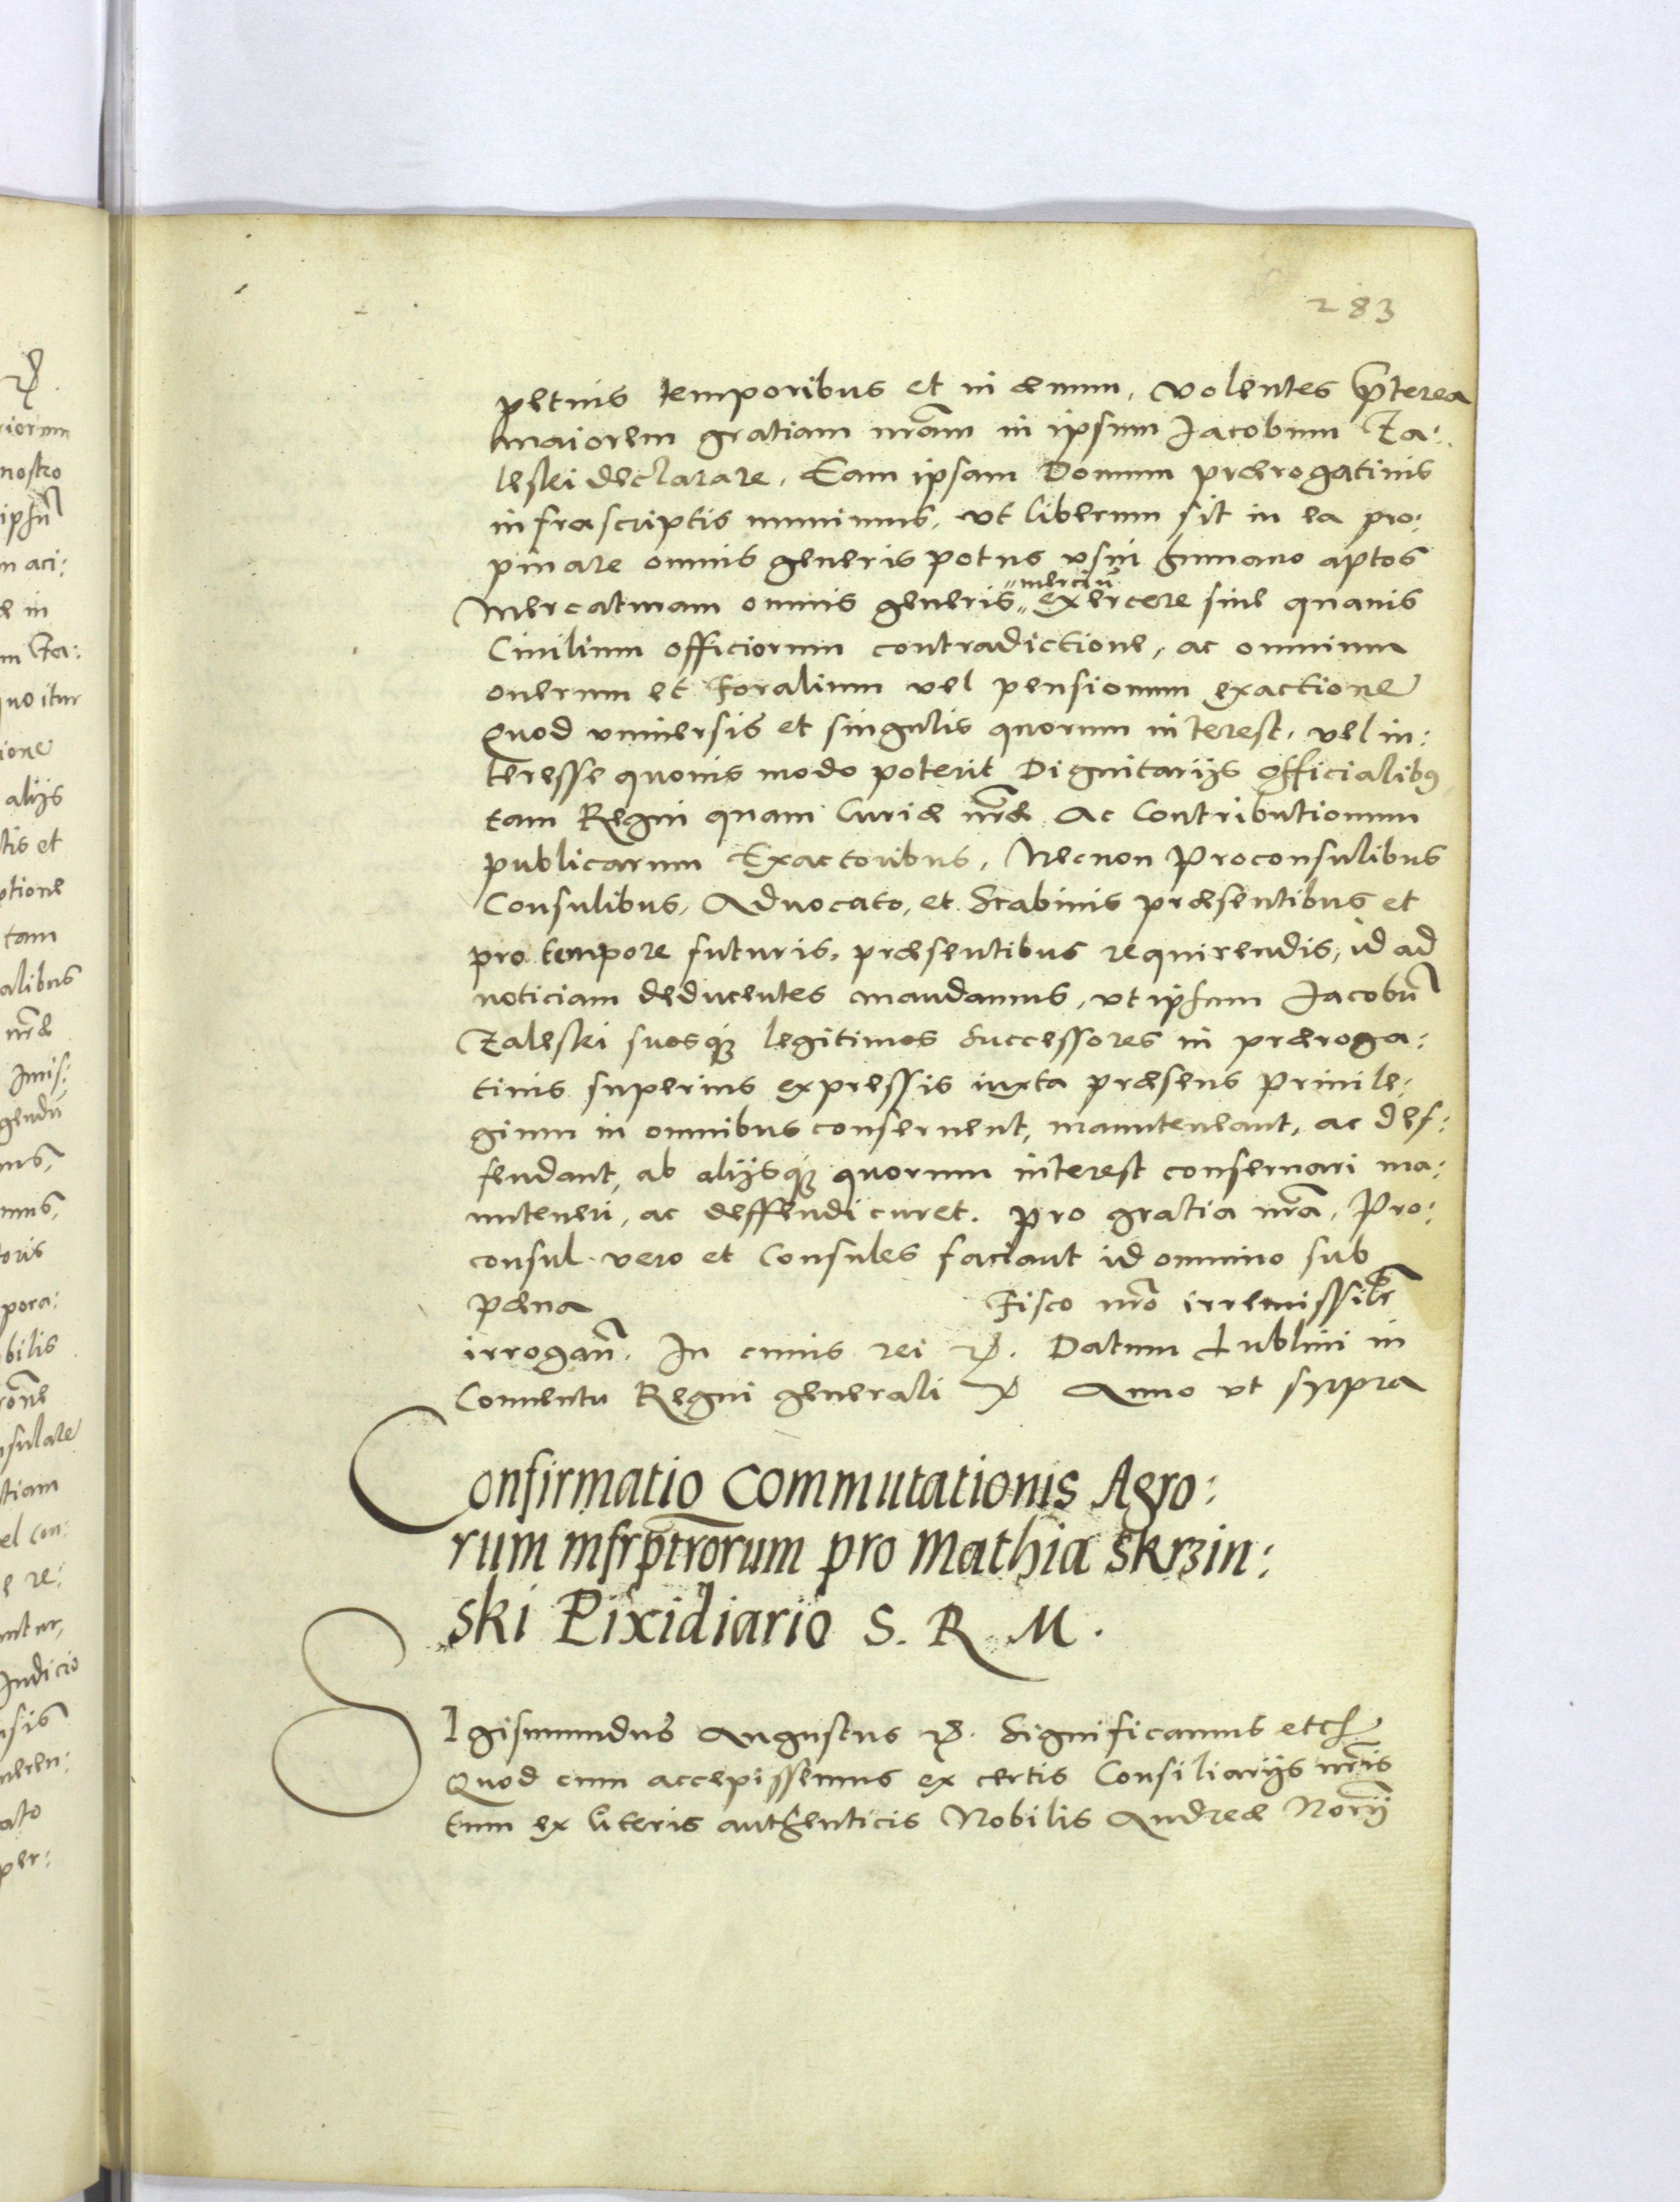 283
petuis temporibus et in aeuum, volentes p̄terea
maiorem gratiam nr̄am in ipsum Jacobum Za:
leski declarare, Eam ipsam Domum præerogatiuis
infrascriptis munimus, vt liberum sit in ea pro:
pinare omnis generis potus vsui humano aptos
Mercaturam omnis generis merciū exercere sine quauis
Ciuilium officiorum contradictione, ac omnium
onerum et foralium vel pensionum exactione
Quod vniuersis et singulis quorum interest, vel in:
teresse quouis modo poterit Dignitarijs Officialibus
tam Regni quam Curiæ nr̄æ Ac Contributionum
publicarum Exactoribus, Necnon Proconsulibus
Consulibus, Aduocato, et Scabinis præsentibus et
pro tempore futuris, præsentibus requirendis, id ad
noticiam deducentes mandamus, vt ipsum Jacobū
Zaleski suosq̨ legitimos Successores in præroga:
tiuis superius expressis iuxta præsens priuile:
gium in omnibus conseruent, manuteneant, ac def:
fendant, ab alijsq̨ quorum interest conseruari ma:
nuteneri, ac deffendi curet. pro gratia nr̄a, Pro:
consul vero et Consules faciant id omnino sub
pæna Fisco nr̄o irremissibł̄r
irrogan̄. In cuius rei etc. Datum Lublini in
Conuentu Regni generali etc Anno vt supra
Confirmatio Commutationis Agro:
rum infrptrōrum pro Mathia Skrzin:
ski Pixidiario S. R. M.
SIgismundus Augustus etc. Significamus etc
Quod cum accepissemus ex certis Consiliarijs nr̄is
tum ex literis authenticis Nobilis Andreæ